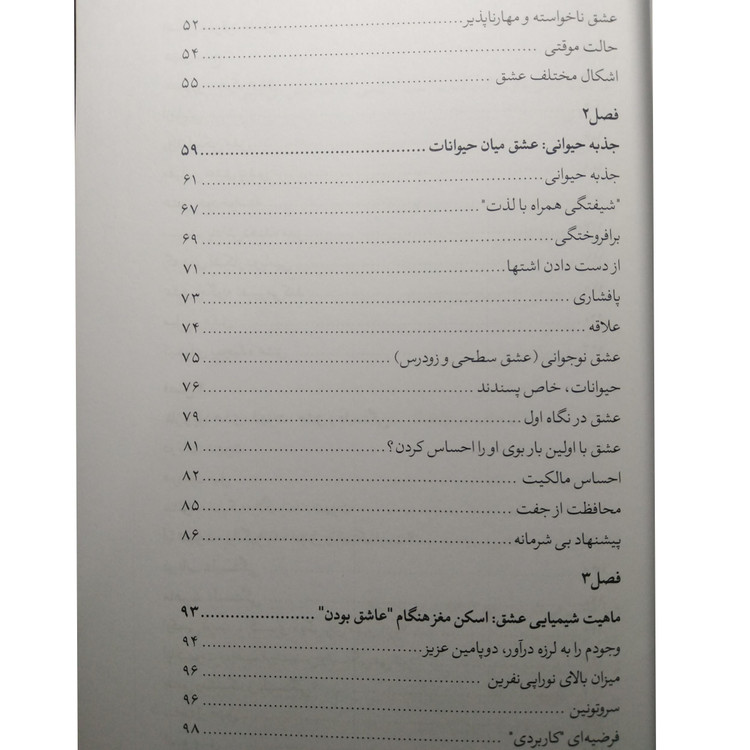 عشق ناخواسته و مهارناپذیر....................................۵۲
حالت موقتی ....................................۵۴
اشکال مختلف عشق ....................................۵۵
فصل۲
جذبه حیوانی: عشق میان حیوانات ....................................۵۹
جذبه حیوانی....................................۶۱
"شیفتگی همراه با لذت"....................................۶۷
برافروختگی....................................۶۹
از دست دادن اشتها....................................۷۱
پافشاری ....................................۷۳
علاقه ....................................۷۴
عشق نوجوانی (عشق سطحی و زودرس) ....................................۷۵
حیوانات، خاص پسندند ....................................۷۶
عشق در نگاه اول ....................................۷۹
عشق با اولین بار بوی او را احساس کردن؟....................................۸۱
احساس مالکیت ....................................۸۲
محافظت از جفت ....................................۸۵
پیشنهاد بی شرمانه....................................۸۶
فصل۳
ماهیت شیمیایی عشق: اسکن مغز هنگام "عاشق بودن" ....................................۹۳
وجودم را به لرزه درآور، دوپامین عزیز....................................۹۴
میزان بالای نوراپی‌نفرین ....................................۹۶
سروتونین ....................................۹۶
فرضیه‌ای "کاربردی" ....................................۹۸